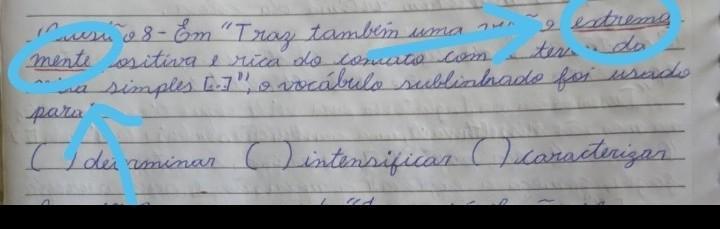 8 - Em "Traz também uma extrema
mente positiva e rica do contato com terra da
simples [..]", o vocábulo sublinhado foi usado
para
( ) determinar ( ) intensificar ( ) caracterizar